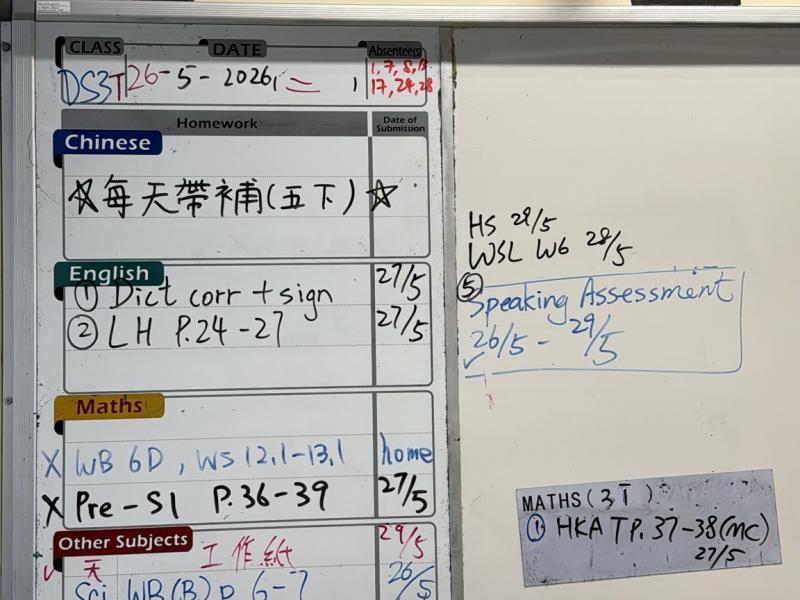 CLASS DATE Absentee(s)
DS3T 26-5-2026, = 1, 7, 8,
17, 24, 28
Homework Date of Submission
Chinese
☆每天帶補(五下)☆
English
① Dict corr + sign 27/5
② LH P.24-27 27/5
Maths
X WB 6D, WS 12.1-13.1 home
X Pre-S1 P.36-39 27/5
Other Subjects
✓ 天 工作紙 29/5
Sci WB(B) p. 6-7 26/5
HS 29/5
WSL W6 28/5
⑤
Speaking Assessment
26/5 - 29/5
✓
MATHS (3T)
① HKAT P.37-38(MC)
27/5